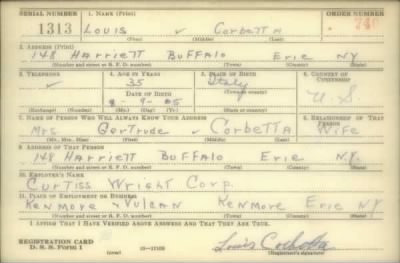 SERIAL NUMBER 1. NAME (Print) ORDER NUMBER
1313 LOUIS v Corbetta
(First) (Middle) (Last)
2. ADDRESS (Print)
148 Harriett BUFFALO Erie NY
(Number and street or R. F. D. number) (Town) (County) (State)
3. TELEPHONE 4. AGE IN YEARS 5. PLACE OF BIRTH 6. COUNTRY OF CITIZENSHIP
v 35 Italy
(Town or county)
DATE OF BIRTH
8-9-05 U.S.
(Exchange) (Number) (Mo.) (Day) (Yr.) (State or country)
7. NAME OF PERSON WHO WILL ALWAYS KNOW YOUR ADDRESS 8. RELATIONSHIP OF THAT PERSON
Mrs. Gertrude v Corbetta Wife
(Mr., Mrs., Miss) (First) (Middle) (Last)
9. ADDRESS OF THAT PERSON
148 Harriett BUFFALO Erie N.Y.
(Number and street or R. F. D. number) (Town) (County) (State)
10. EMPLOYER'S NAME
Curtiss Wright Corp.
11. PLACE OF EMPLOYMENT OR BUSINESS
Kenmore & Vulcan Kenmore Erie NY
(Number and street or R. F. D. number) (Town) (County) (State)
I AFFIRM THAT I HAVE VERIFIED ABOVE ANSWERS AND THAT THEY ARE TRUE.
REGISTRATION CARD
D. S. S. Form 1 (over) Louis Corbetta
(Registrant's signature)